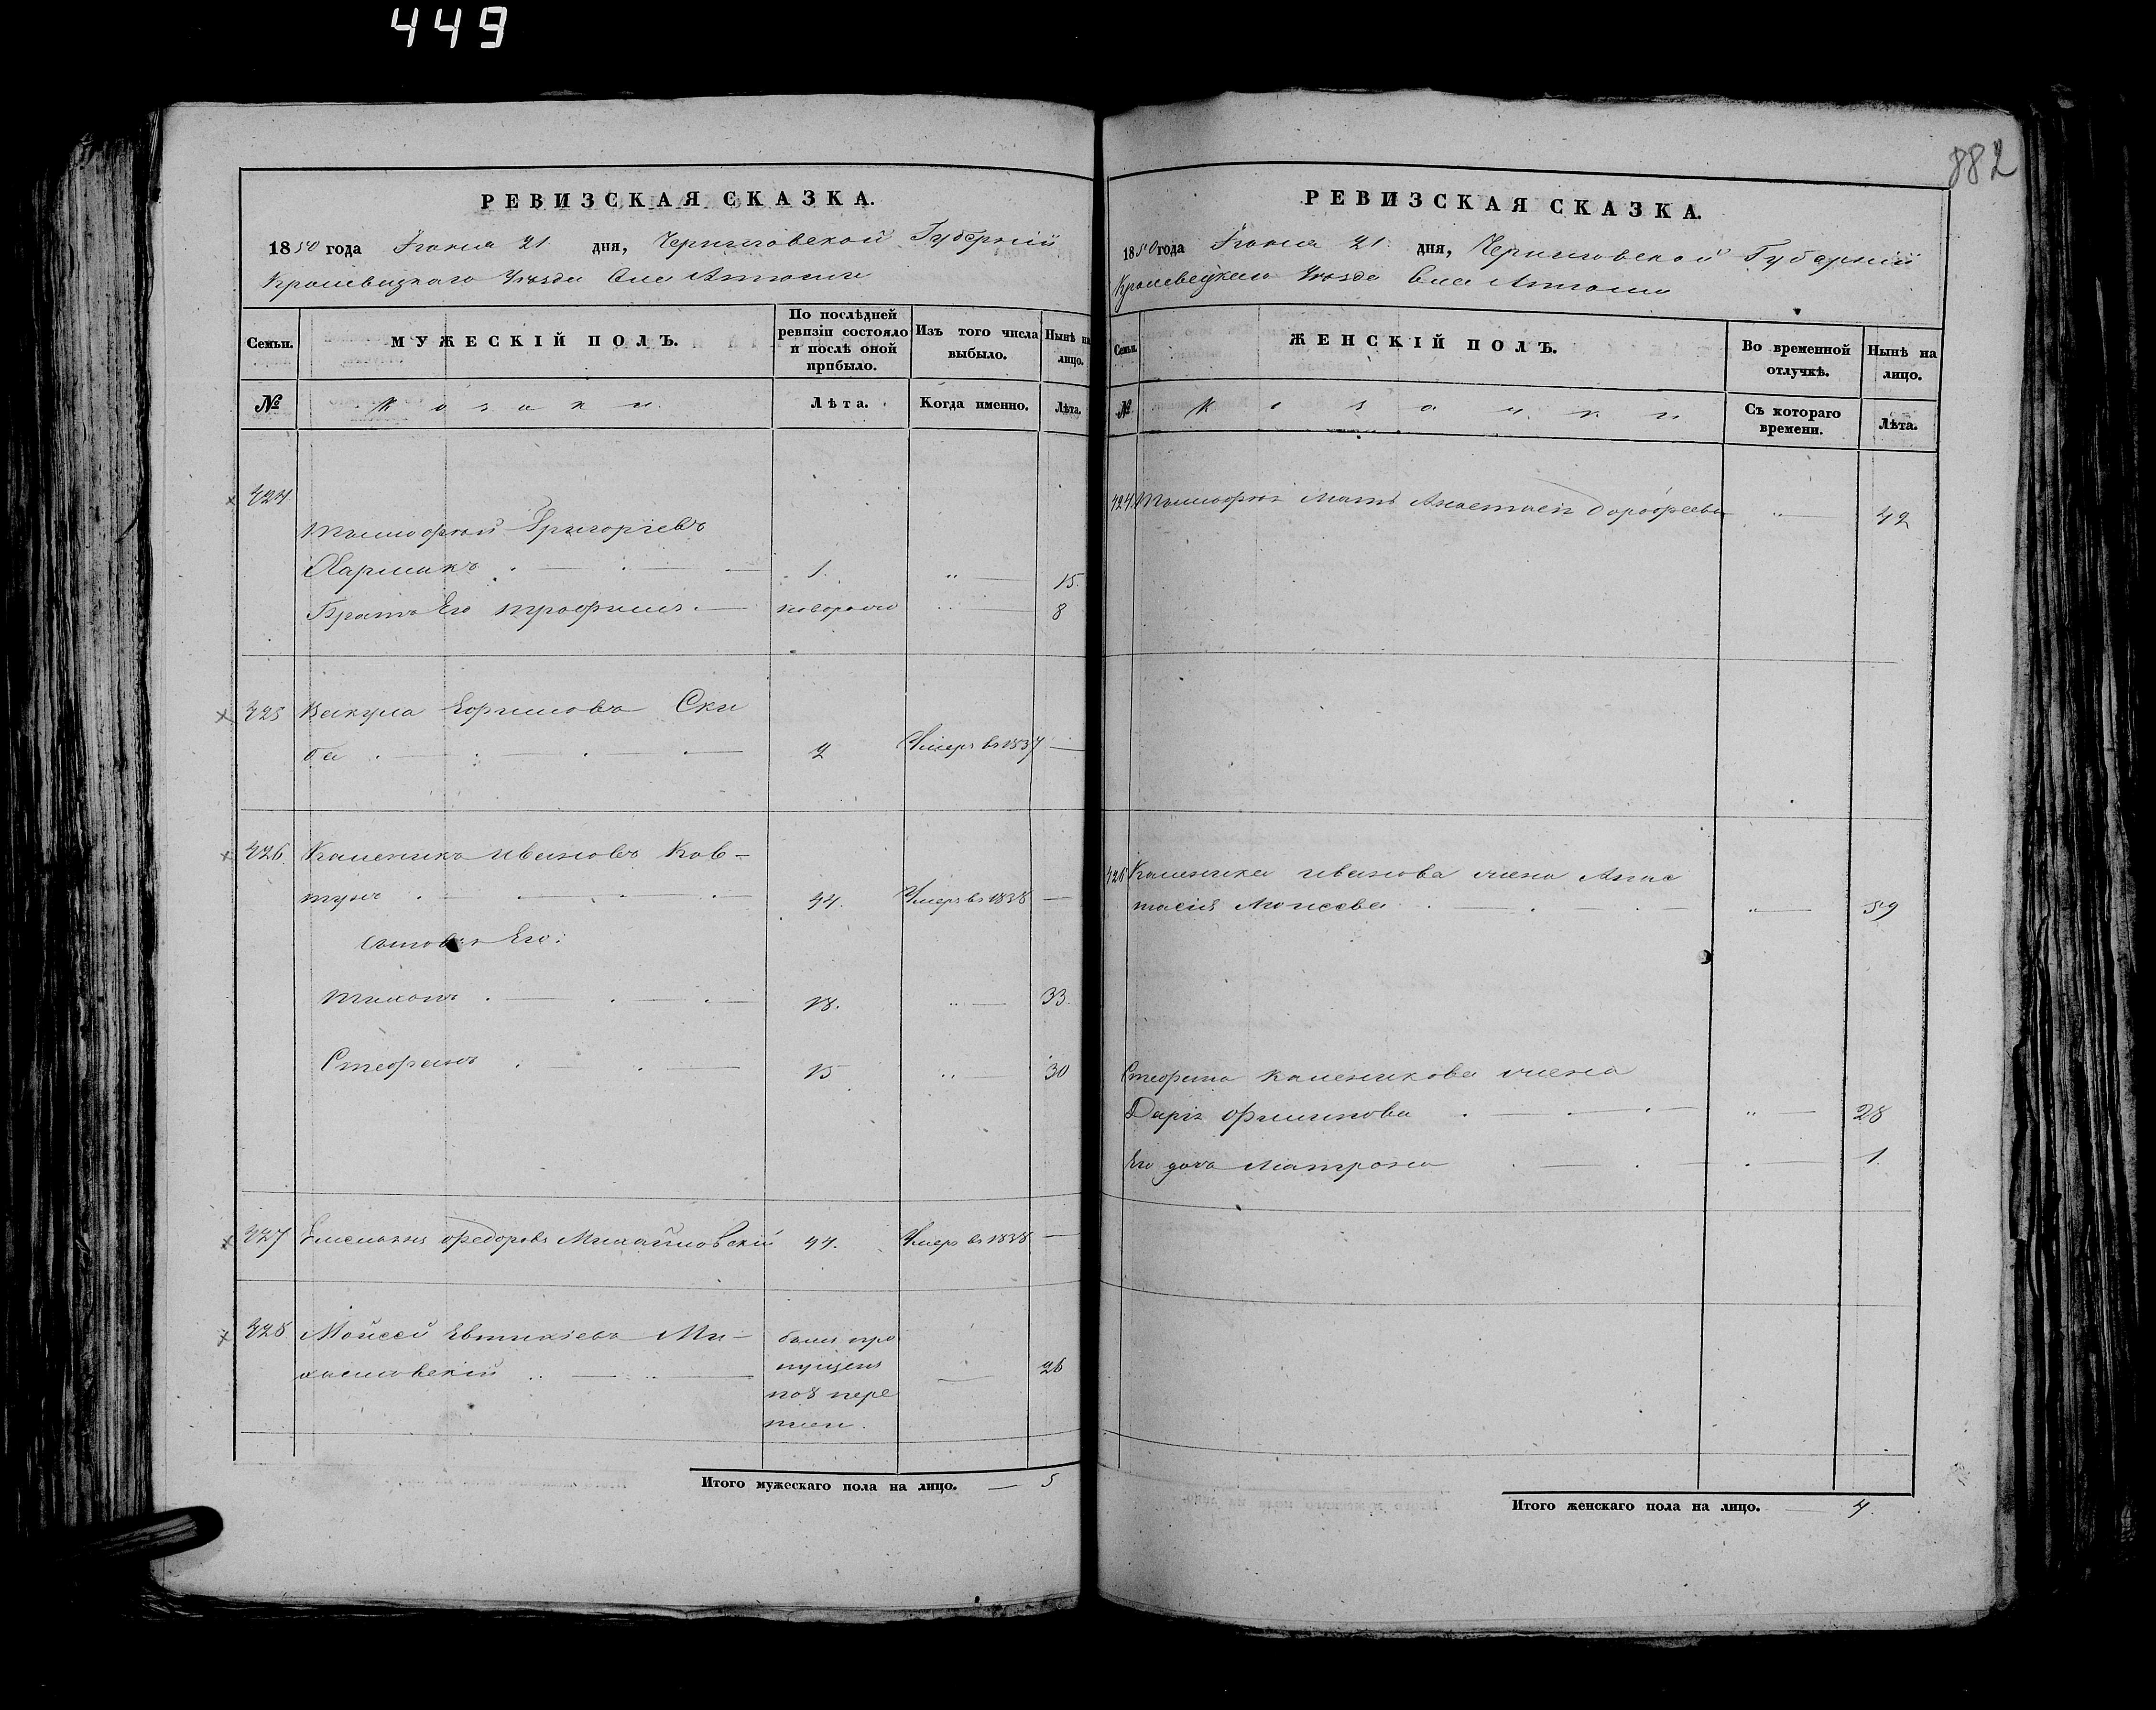 449
882
РЕВИЗСКАЯ СКАЗКА.
1850 года Іюня 21 дня, Черниговской Губерніи
Кролевецкаго Уѣзда Села
Семьи. МУЖЕСКІЙ ПОЛЪ. По послѣдней ревизіи состояло и послѣ оной прибыло. Изъ того числа выбыло. Нынѣ на лицо.
№ Козаки Лѣта. Когда именно. Лѣта.
424
Тимофей Григоріевъ
1. „ 15.
Братъ Его Трофимъ новорож „ 8
425 Вакула Ефимовъ Ски
ба 2 Умеръ въ 1837 —
426. Каленикъ Ивановъ Ков-
тунъ 44. Умеръ въ 1838 —
Сыновья Его:
Тихонъ 18. „ 33.
Стефанъ 15 „ 30
427 Емельянъ Федоровъ Михайловскій 44. Умеръ въ 1838 —
428 Мойсей Евтихіевъ Ми-
хайловскій
былъ про
пущенъ
по 8 пере
писи. — 26
Итого мужескаго пола на лицо. — 5
РЕВИЗСКАЯ СКАЗКА.
1850 года Іюня 21 дня, Черниговской Губерніи
Кролевецкаго Уѣзда Села
Семьи. ЖЕНСКІЙ ПОЛЪ. Во временной отлучкѣ. Нынѣ на лицо.
№ Козачки Съ котораго времени. Лѣта.
424 Тимофея Мать Анастасія Дорофеева „ 42
426 Каленика Иванова жена Анас
тасія Моисеева „ 59
Стефана Каленикова жена
Дарія Филипова „ 28
Его дочь Матрона 1.
Итого женскаго пола на лицо. — 4.